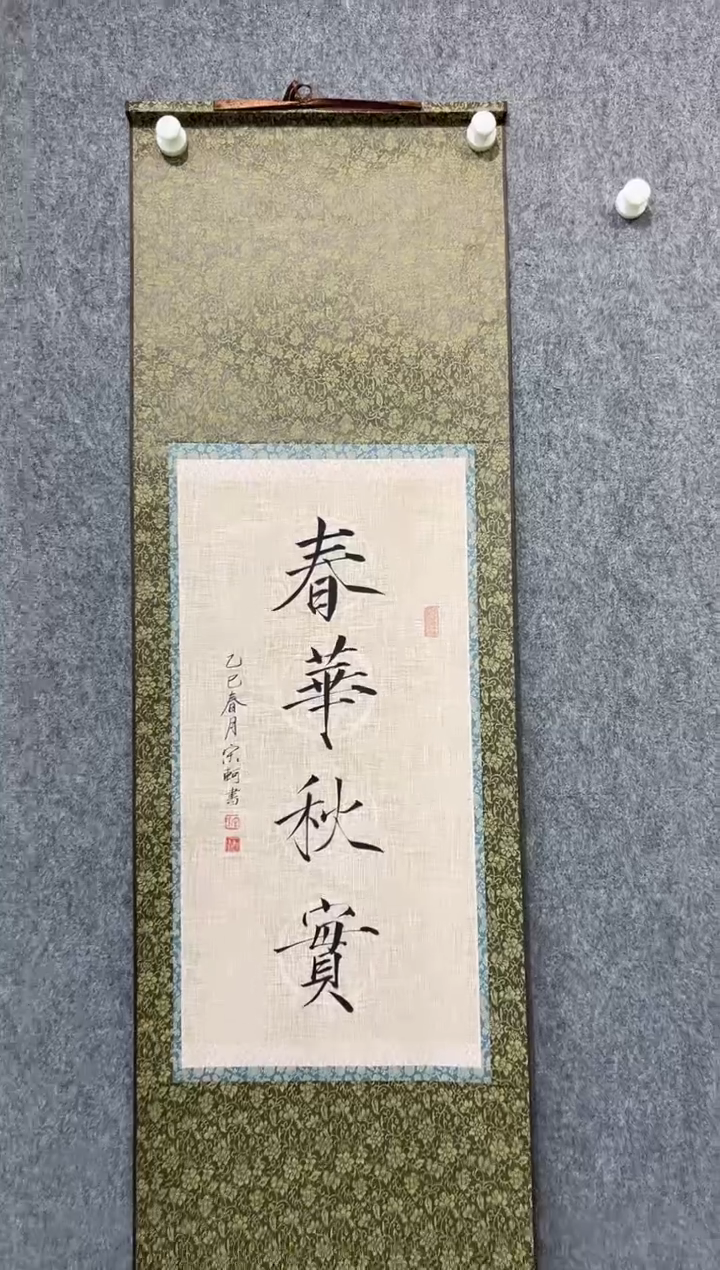 春華秋實
乙巳春月宗軻書